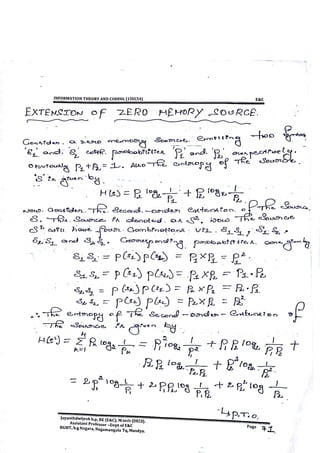 INFORMATION THEORY AND CODING (15EC54) E&C
EXTENSION of ZERO MEMORY SOURCE.
Consider a zero memory source emitting two symbols
'S₁' and 'S₂' with probabilities 'P₁' and 'P₂' respectively.
Obviously P₁+P₂ = 1. Also The entropy of The source
'S' is given by
H(s) = P₁ log₂ 1/P₁ + P₂ log₂ 1/P₂
Now consider The second-order extension of The source
S. The source is denoted as S². Now The source
S² will have four combinations viz. S₁S₁, S₁S₂,
S₂S₁ and S₂S₂. Corresponding probabilities are given by
S₁S₁ = P(s₁) P(s₁) = P₁×P₁ = P₁².
S₁S₂ = P(s₁) P(s₂) = P₁×P₂ = P₁·P₂
S₂S₁ = P(s₂) P(s₁) = P₂×P₁ = P₂·P₁
S₂S₂ = P(s₂) P(s₂) = P₂×P₂ = P₂²
∴ The entropy of The second-order-extension of
The source is given by
H(s²) = 4 Σ k=1 Pₖ log₂ 1/Pₖ = P₁² log₂ 1/P₁² + P₁P₂ log₂ 1/P₁P₂ +
P₂P₁ log 1/P₂P₁ + P₂² log 1/P₂²
= 2P₁² log 1/P₁ + 2P₁P₂ log 1/P₁P₂ + 2P₂² log 1/P₂
P.T.O.
Assistant Professor -Dept of E&C
BGSIT, b.g Nagara, Nagamangala Tq, Mandya.
Page 71